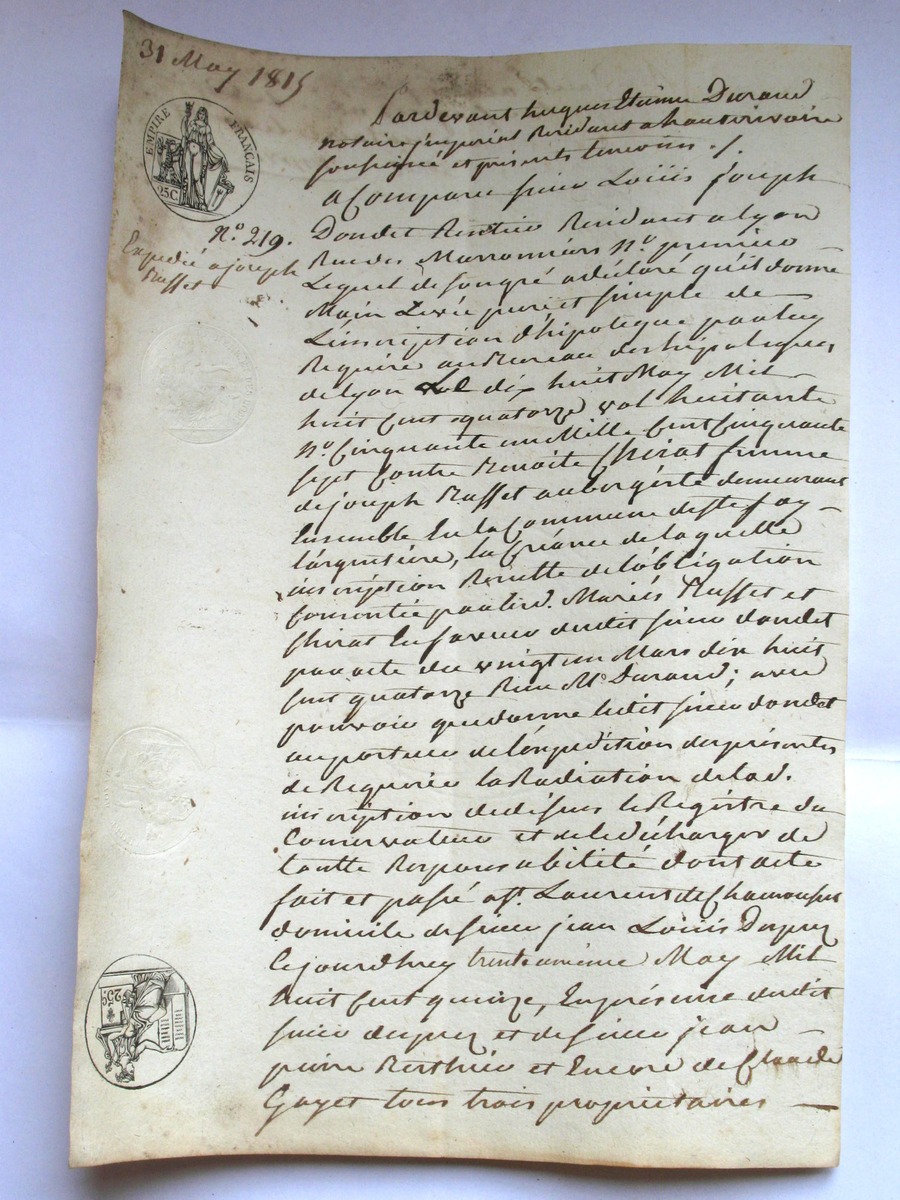 31 May 1815
EMPIRE FRANÇAIS
25C
N.o 219.
Expedié a joseph
Russet
Pardevant hugues Etienne Durand
notaire imperial Residant a hauterivoire
soussigné et présents temoins ./.
a Comparu sieur Louis joseph
Dondet Rentier Residant a Lyon
Rue des Marronniers N.o premier
Lequel de son gré a déclaré qu'il donne
Main Levée pure et simple de
L'inscription d'hipoteque par luy
Requise au Bureau des hipoteques
de Lyon Le dix huit May Mil
huit Cent quatorze vol huitante
N.o Cinquante un Mille Cent Cinquante
sept Contre Benoite Chirat femme
de joseph Russet aubergiste demeurant
Ensemble En la Commune de Ste foy
l'argentiere, la Créance de laquelle
inscription Resulte de l'obligation
Consentie par lesd. Mariés Russet et
Chirat En faveur dudit sieur dondet
par acte du vingt un Mars dix huit
Cent quatorze Reçu Me Durand; avec
pouvoir que donne ledit sieur dondet
au porteur de l'expédition des présentes
de Requerir la Radiation de lad.
inscription de dessus le Registre du
Conservateur et de le décharger de
toutte Responsabilité dont acte
fait et passé a St. Laurent de Chamousset
domicile de sieur jean Louis Duprez
Cejourdhuy trente unieme May Mil
huit Cent quinze, En présence dudit
sieur duprez et de sieur jean
pierre Berthier et Encore de Claude
Gayet tous trois propriétaires
25C.